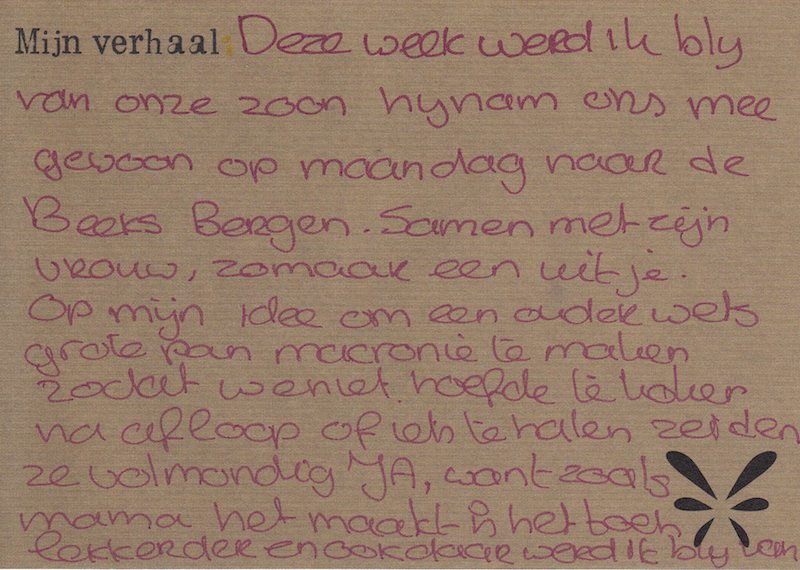 Mijn verhaal: Deze week werd ik bly
van onze zoon hynam ons mee
gewoon op maandag naar de
Beeks Bergen. Samen met zijn
vrouw, zomaar een uitje.
Op mijn idee om een ouderwets
grote pan macronie te maken
zodat we niet hoefde te koken
na afloop of iets te halen zeiden
ze volmondig JA, want zoals
mama het maakt is het toch
lekkerder en ook daar werd ik bly van